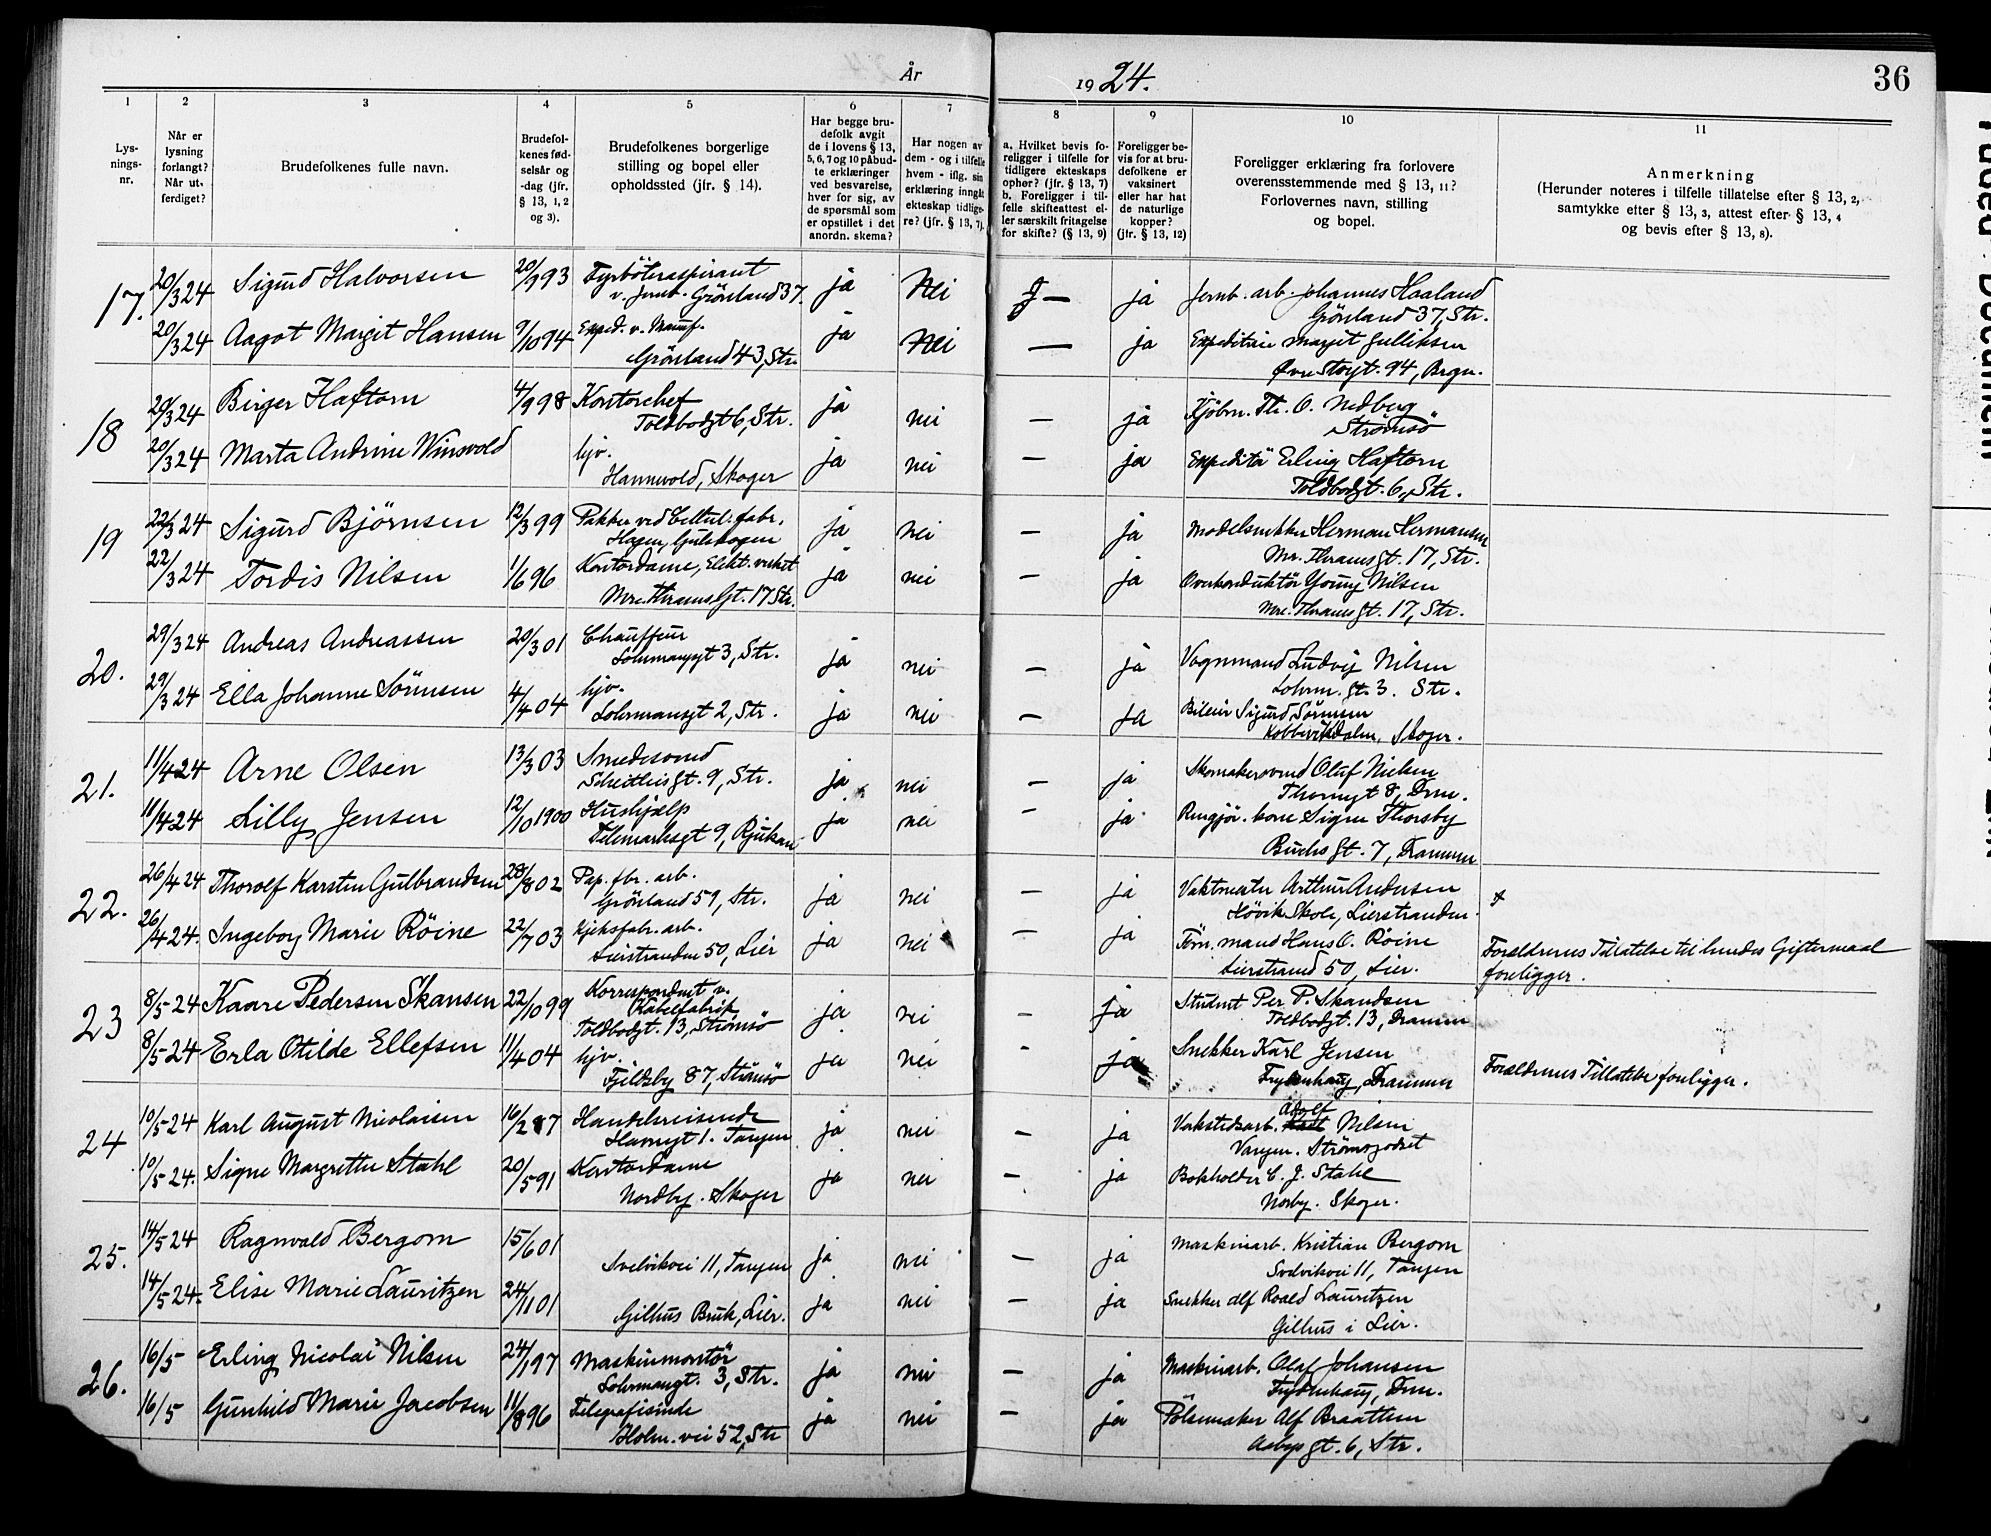 År 1924.
36
1
2
3
4
5
6
7
8
9
10
11
Lys-
nings-
nr.
Når er
lysning
forlangt?
Når ut-
ferdiget?
Brudefolkenes fulle navn.
Brudefol-
kenes fød-
selsår og
-dag (jfr.
§ 13, 1, 2
og 3).
Brudefolkenes borgerlige
stilling og bopel eller
opholdssted (jfr. § 14).
Har begge bru-
defolk avgit
de i lovens § 13,
5, 6, 7 og 10 påbud-
te erklæringer
ved besvarelse,
hver for sig, av
de spørsmål som
er opstillet i det
anordn. skema?
Har nogen av
dem - og i tilfelle
hvem - iflg. sin
erklæring inngåt
ekteskap tidlige-
re? (jfr. § 13, 7).
a. Hvilket bevis fo-
religger i tilfelle for
tidligere ekteskaps
ophør? (jfr. § 13, 7)
b. Foreligger i til-
felle skifteattest el-
ler særskilt fritagelse
for skifte? (§ 13, 9)
Foreligger be-
vis for at bru-
defolkene er
vaksinert
eller har hat
de naturlige
kopper?
(jfr. § 13, 12)
Foreligger erklæring fra forlovere
overensstemmende med § 13, 11?
Forlovernes navn, stilling
og bopel.
Anmerkning
(Herunder noteres i tilfelle tillatelse efter § 13, 2,
samtykke efter § 13, 3, attest efter § 13, 4
og bevis efter § 13, 8).
17. 20/3 24 Sigurd Halvorsen 20/9 93 Fyrbøteraspirant ja Nei — ja Jernb. arb. Johannes Haaland
v. Jernb. Grönland 37. Grönland 37, Str.
20/3 24 Aagot Margit Hansen 9/10 94 Exped. v. Manuf. ja Nei — ja Expeditrice Margit Gulliksen
Grönland 43, Str. Øvre Storgt. 94, Brgn.
18 20/3 24 Birger Haftorn 4/9 98 Kontorchef ja nei — ja Kjöbm. Th. O. Nedberg
Toldbodgt 6, Str. Strömsö
20/3 24 Marta Andrine Winsvold hjv. ja nei — ja Expeditör Erling Haftorn
Hannevold, Skoger Toldbodgt. 6, Str.
19 22/3 24 Sigurd Bjørnsen 12/3 99 Pakker ved Cellul. fabr. ja nei — ja Modelsnekker Herman Hermansen
Hagen, Gulskogen Mr. Thranes gt. 17, Str.
22/3 24 Tordis Nilsen 1/6 96 Kontordame, Elekt. verket ja nei — ja Overkonduktör Young Nilsen
Mre. Thranes Gt. 17 Str. Mre. Thranes gt. 17, Str.
20. 29/3 24 Andreas Andreassen 20/3 01 Chauffeur ja nei — ja Vognmand Ludvig Nilsen
Lohrmannsgt 3, Str. Lohrm. gt. 3. Str.
29/3 24 Ella Johanne Sörensen 4/4 04 hjv. ja nei — ja Bileier Sigurd Sörensen
Lohrmansgt 2, Str. Kobbervikdalen, Skoger.
21. 11/4 24 Arne Olsen 13/3 03 Smedesvend ja nei — ja Skomakersvend Olaf Nielsen
gt. 9, Str. Thornegt 8, Drm.
11/4 24 Lilly Jensen 12/10 1900 Hushjælp ja nei — ja Rengjör. kone Signe Thorsby
Telemarksgt 9, Rjukan Buchs gt. 7, Drammen
22. 26/4 24 Thorolf Karsten Gulbrandsen 28/8 02 Pap. fbr. arb. ja nei — ja Vaktmester Arthur Andersen
Grönland 59, Str. Høvik Skole, Lierstranden.
26/4 24. Ingeborg Marie Röine 22/7 03 Kjeksfabr. arb. ja nei — ja Törn. mand Hans O. Röine Forældrenes Tillatelse til hendes Giftermaal
Lierstranden 50, Lier Lierstrand 50, Lier. foreligger.
23 8/5 24 Kaare Pedersen Skansen 22/10 99 Korrespondent v. ja nei — ja Student Per P. Skandsen
Kabelfabrik
Toldbodgt. 13, Strömsö Toldbodgt. 13, Drammen
8/5 24 Erla Otilde Ellefsen 11/4 04 hjv. ja nei - ja Snekker Karl Jensen
Fjeldsby 87, Strömsö Frydenhaug, Drammen Forældrenes Tillatelse foreligger.
24 10/5 24 Karl August Nicolaisen 16/2 87 Handelsreisende ja nei — ja Verkstedsarb. Adolf Nilsen
Havnegt 1. Tangen Vangen. Strömsgodset
10/5 24. Signe Margrethe Stahl 20/5 91 Kontordame ja nei — ja Bokholder C. J. Stahl
Nordby. Skoger Norby. Skoger.
25. 14/5 24 Ragnvald Bergom 15/6 01 ja nei — ja Maskinarb. Kristian Bergom
Svelvikvei 11, Tangen Svelvikvei 11, Tangen
14/5 24. Elise Marie Lauritzen 24/11 01 ja nei — ja Snekker Alf Roald Lauritzen
Gilhus Bruk, Lier. Gilhus i Lier.
26. 16/5 Erling Nicolai Nilsen 24/1 97 Maskinmontör ja nei — ja Maskinarb. Olaf Johansen
Lohrmangt. 3, Str. Frydenhaug, Drm.
16/5 Gunhild Marie Jacobsen 11/8 96 Telegrafistinde ja nei — ja Pölsemaker Alf Braathen
Holm. vei 52, Str gt. 6, Str.